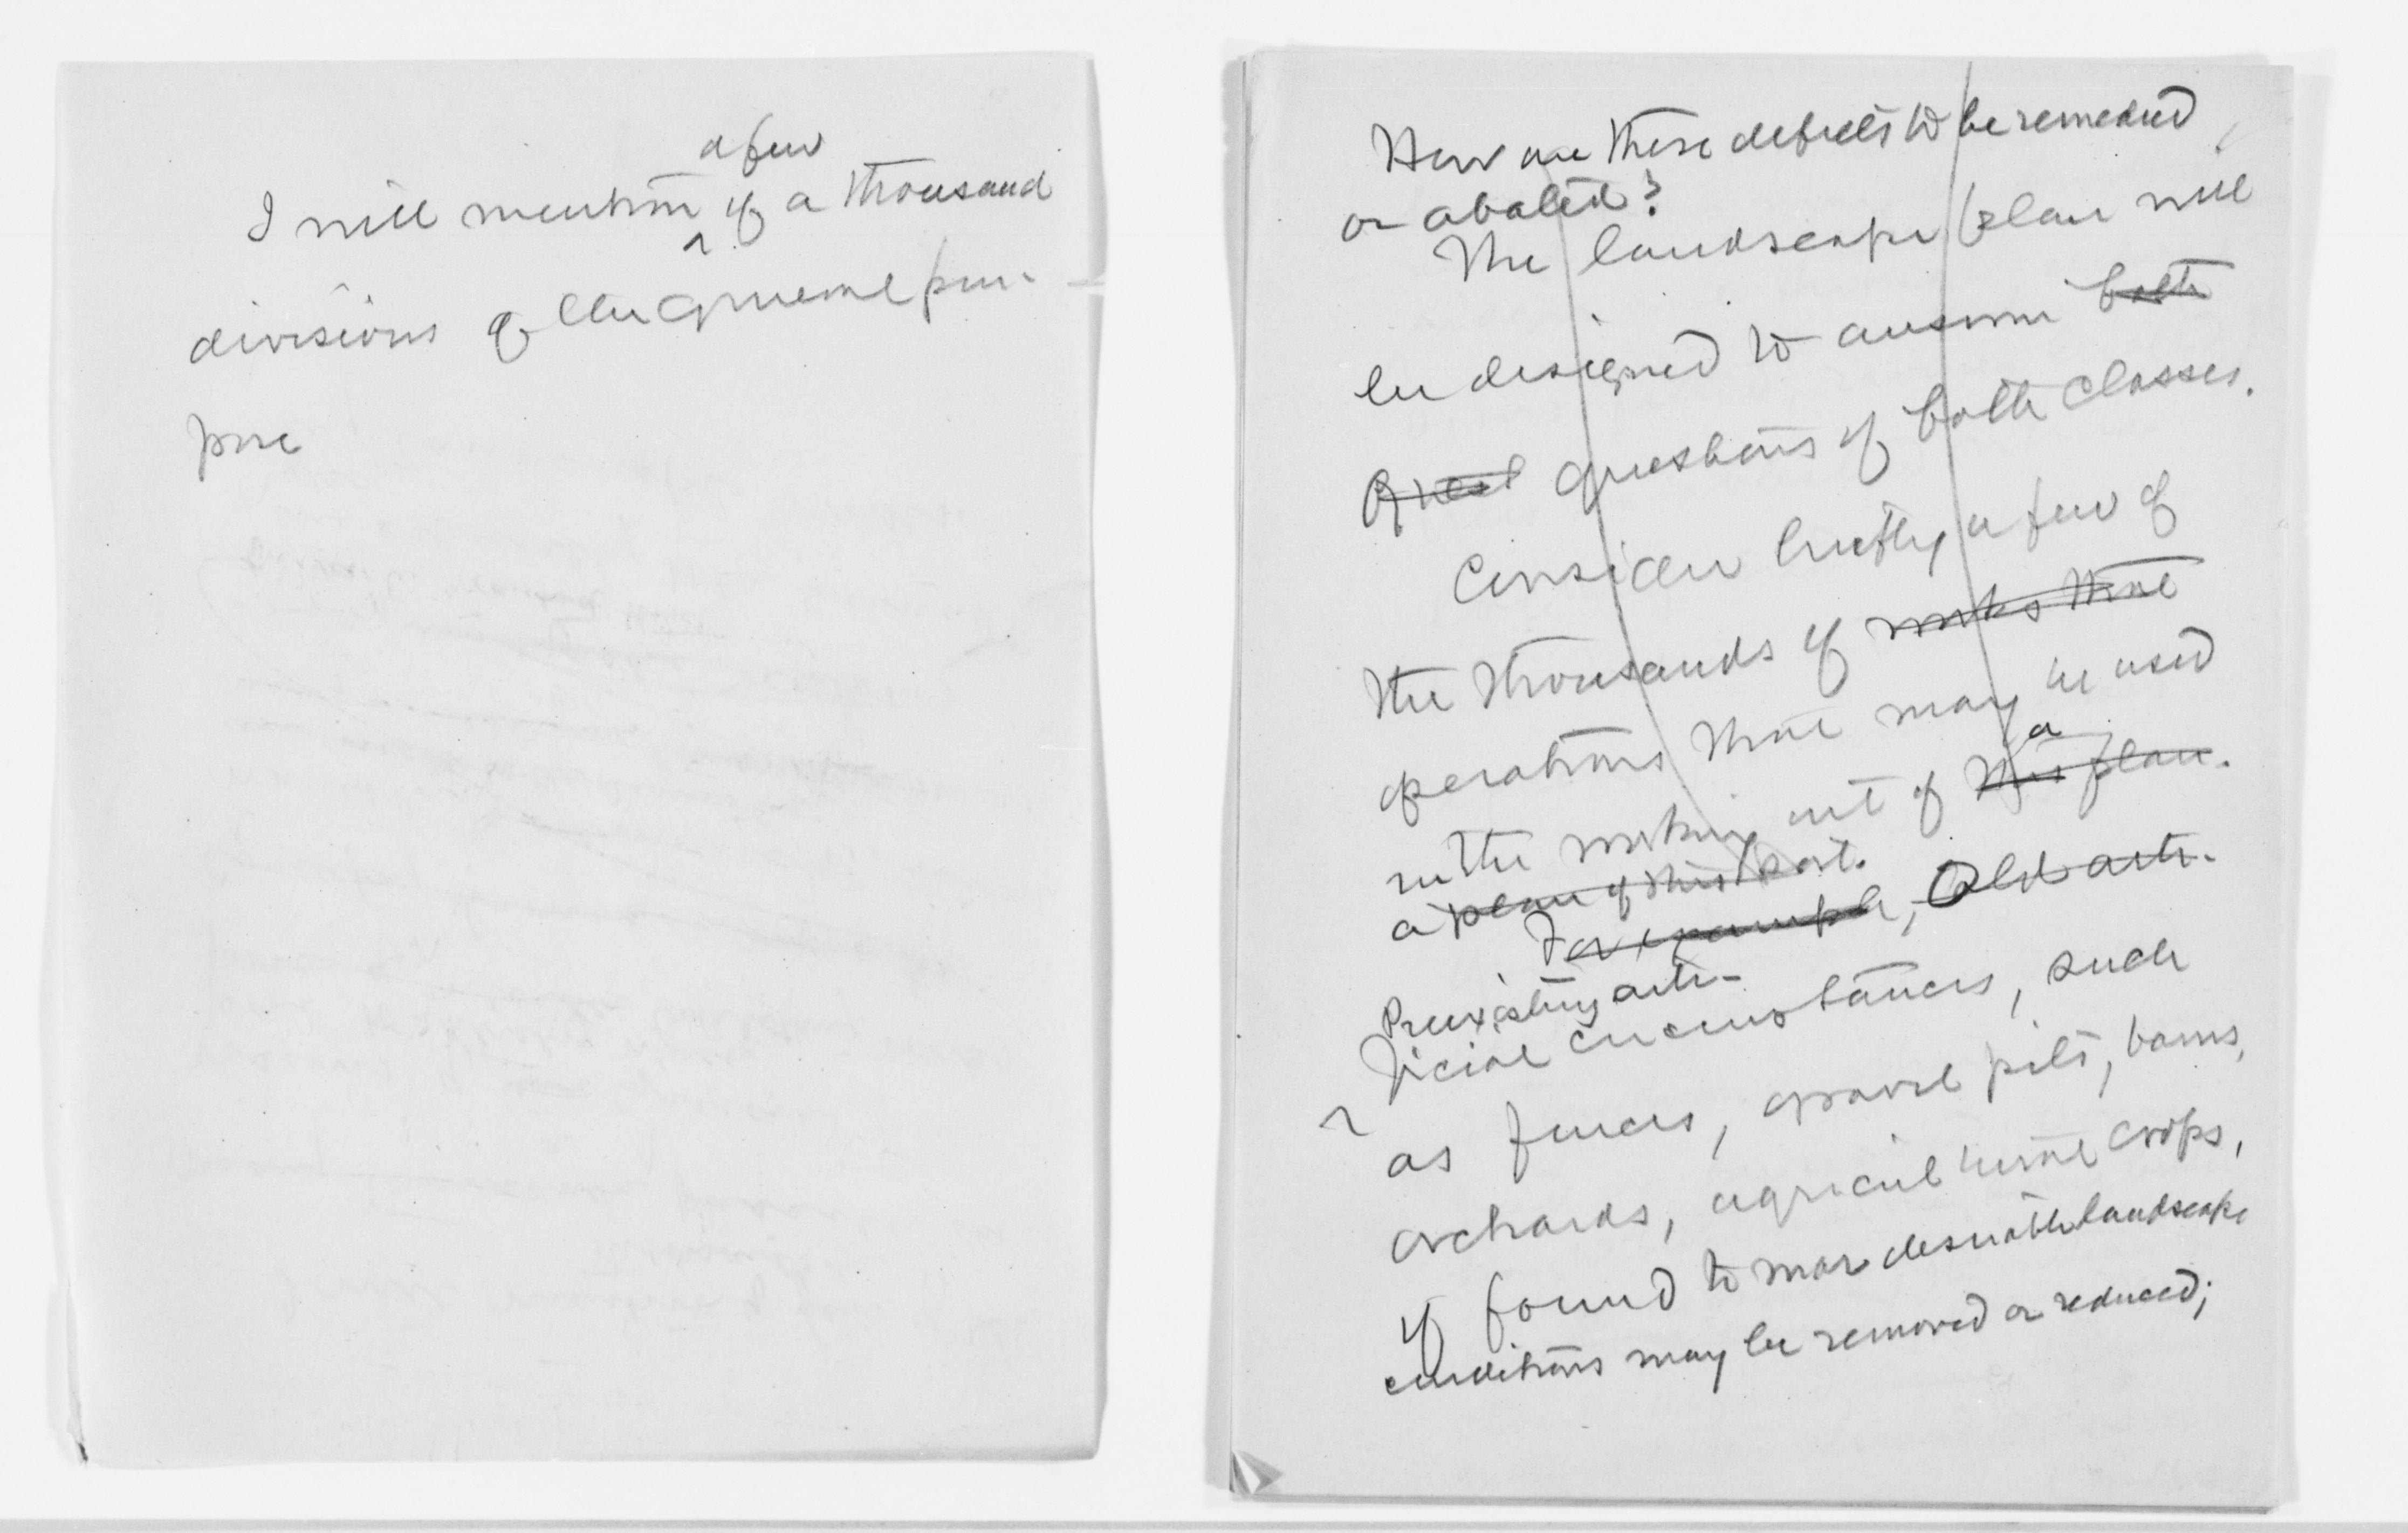 a few
I will mention ^ of a thousand
divisions of the general pur-
pose
How are these defects to be remedied
or abated?
The landscape plan will
be designed to answer both
Great questions of both classes.
Consider briefly a few of
the thousands of works that
operations that may be used
a
in the working out of this plan.
a plan of this sort.
For example, Old arti-
Preexisting arti-
ficial circumstances, such
as fences, gravel pits, barns,
orchards, agricultural crops,
if found to mar desirable landscape
conditions may be removed or reduced;